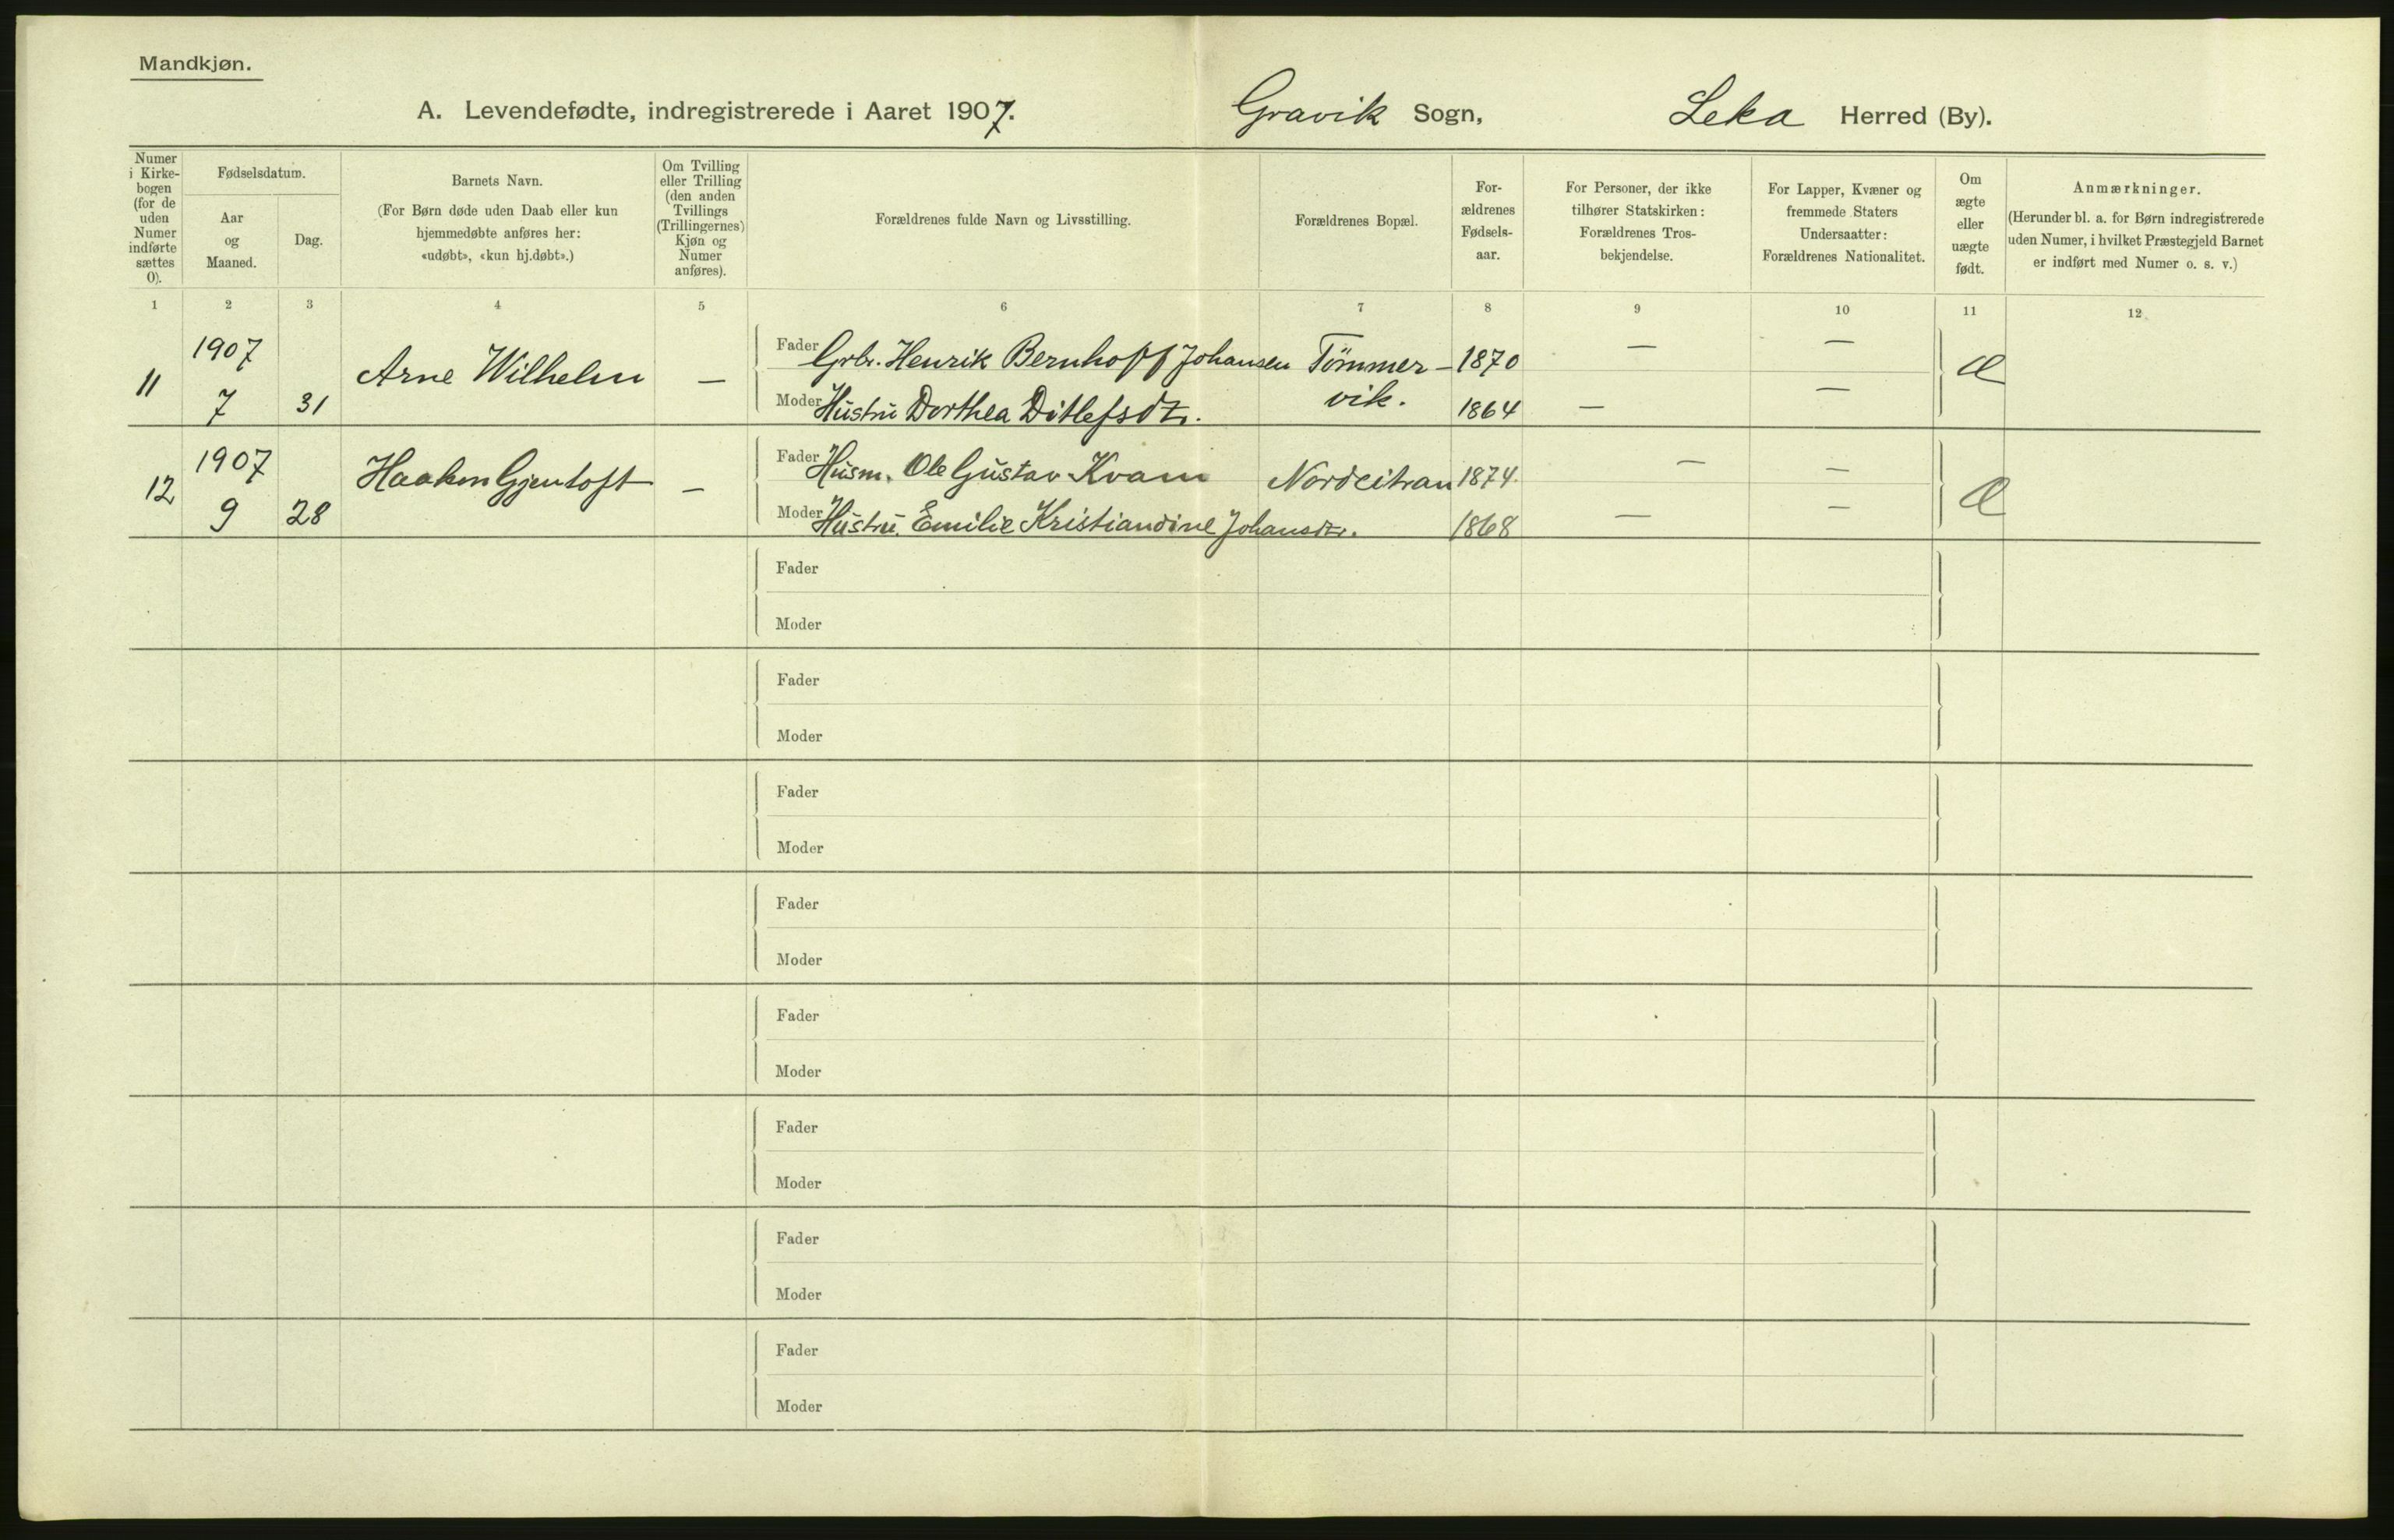 Mandkjøn.
A. Levendefødte, indregistrerede i Aaret 1907. Gravik Sogn, Leka Herred (By).
Numer i Kirke-bogen (for de uden Numer indførte sættes 0).
Fødselsdatum.
Aar og Maaned.
Dag.
Barnets Navn.
(For Børn døde uden Daab eller kun
hjemmedøbte anføres her:
«udøbt», «kun hj.døbt».)
Om Tvilling
eller Trilling
(den anden
Tvillings
(Trillingernes)
Kjøn og
Numer
anføres).
Forældrenes fulde Navn og Livsstilling.
Forældrenes Bopæl.
For-
ældrenes
Fødsels-
aar.
For Personer, der ikke
tilhører Statskirken:
Forældrenes Tros-
bekjendelse.
For Lapper, Kvæner og
fremmede Staters
Undersaatter:
Forældrenes Nationalitet.
Om
ægte
eller
uægte
født.
Anmærkninger.
(Herunder bl. a. for Børn indregistrerede
uden Numer, i hvilket Præstegjeld Barnet
er indført med Numer o. s. v.)
1 2 3 4 5 6 7 8 9 10 11 12
1907 Fader Grbr. Henrik Bernhoff Johansen Tömmer- 1870 — —
11 7 31 Arne Wilhelm — Moder Hustru Dorthea Ditlefsdtr. vik. 1864 — — Æ
1907 Fader Husm. Ole Gustav Kvam 1874. — —
12 9 28 Haakon Gjentoft — Moder Hustru Emilie Kristiandine Johansdtr. 1868 — — Æ
Fader
Moder
Fader
Moder
Fader
Moder
Fader
Moder
Fader
Moder
Fader
Moder
Fader
Moder
Fader
Moder